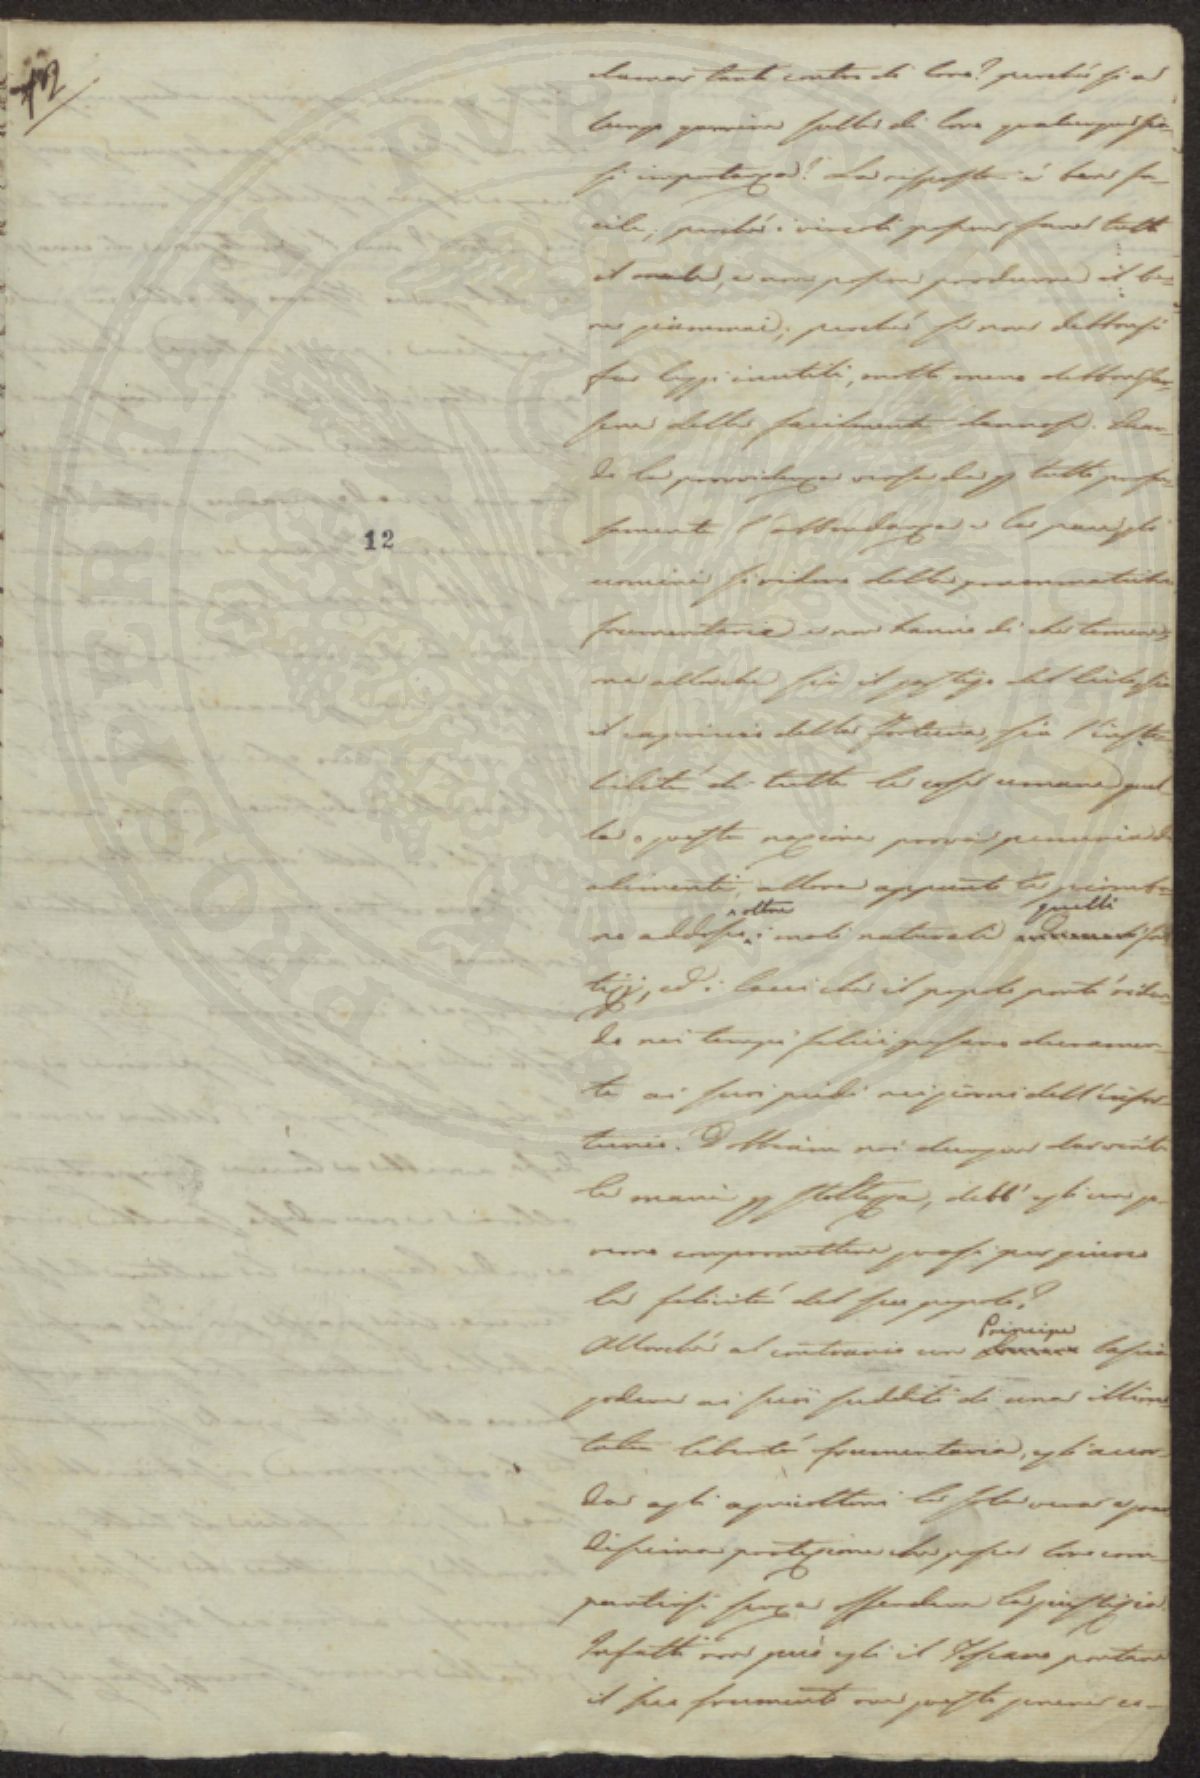 12
clamar tanto contro di loro? perché si at
tengo guerra sulle di loro qualunque sia-
si importanza? La risposta é ben fa-
cile; perché i vincoli possono fare tutto
il male, e non possono produrre il be-
ne giammai; perché se non debbonsi
far leggi inutili, molto meno debbonsi far-
sene delle facilmente dannose. Quan-
do la provvidenza versa da p tutto profu-
samente l'abbondanza e la pace, gli
uomini si ridono delle prammatiche
frumentarie e non hanno di che temerne,
ma allorche sia il gastigo del Cielo, sia
il capriccio della Fortuna, sia l'insta-
bilità di tutte le cose umane, quel
la o questa nazione prova penuria di
alimenti, allora appunto le piomba-
no addosso, oltre i mali naturali quelli fat
tizj, ed i lacci che il popolo portó riden-
do nei tempi felici pesano duramen-
te ai suoi piedi nei giorni dell'infor-
tunio. Dobbiam noi dunque darci
le mani p stoltezza, debb' egli un go-
verno compromettere quasi per giuoco
la felicitá del suo popolo?
Allorché al contrario un Principe lascia
godere ai suoi sudditi di una illimi
tata libertá frumentaria, egli accor-
da agli agricoltori la sola vera e gran
dissima protezione che possa loro com-
partirsi senza offendere la giustizia.
Infatti non può egli il Toscano portare
il suo frumento ove questo genere es-